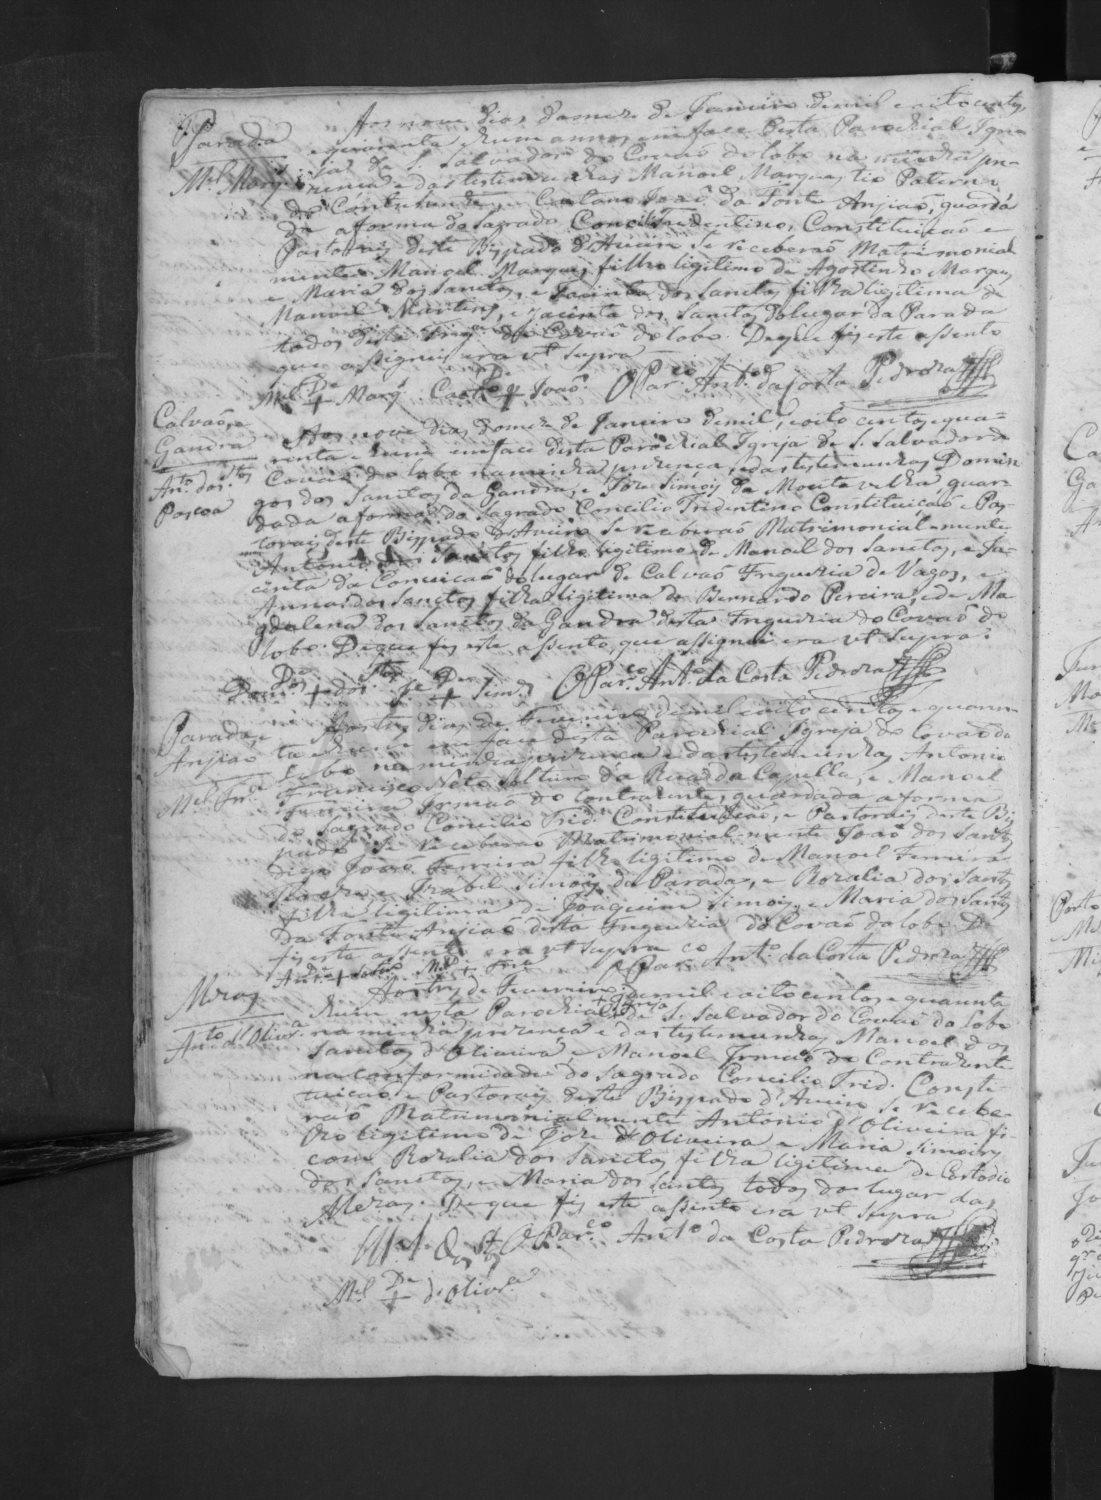 Parada
Ml Marqs
Aos nove dias do mez de Janeiro de mil e oito centos
e quarenta e hum annos em face desta Parochial Igre-
ja de S. Salvador do Covaõ do lobo na minha pre-
zença e das testemunhas Manoel Marques, tio Paterno
do Contrahente e Caetano Jozé da Fonte Anjiaõ, guarda-
da a forma do Sagrado Concilio Tridentino, Constituicaõ e
Pastorais deste Bispado d'Aveiro se receberaõ Matrimonial
mente Manoel Marques filho ligitimo de Agostinho Marques
e Maria dos Sanctos, e Jacinta dos Sanctos filha ligitima de
Manoel Martins, e Jacinta dos Sanctos do lugar da Parada
todos desta Freg.ª do Covaõ do lobo. De que fis este assento
que assignei era vt supra
Ml De + Marq Caeto De + Joaõ. O Par.co Ant.o da Costa Pedroza
Calvaõ, e
Gandra
Ant.o dos S.tos
Pascoa
Aos nove dias do mez de Janeiro de mil, e oito centos, e qua-
renta e hum em face desta Parochial Igreja de S. Salvador do
Covaõ do lobo na minha prezenca, e das testemunhas Domin
gos dos Sanctos da Gandra, e Joze Simois da Monte velha guar-
dada a forma do Sagrado Concilio Tridentino Constituicaõ e Pas-
torais deste Bispado d'Aveiro se receberaõ Matrimonial-mente
Antonio dos Sanctos filho ligitimo de Manoel dos Sanctos, e Ja-
cinta da Conceicaõ do lugar de Calvaõ Freguezia de Vagos, e
Anna dos Sanctos filha ligitima de Bernardo Pereira, e de Ma-
gdalena dos Sanctos da Gandra desta Freguezia do Covaõ do
lobo. De que fis este assento, que assignei era vt supra.
Dom.os De + dos S.tos Je De + Sim.s O Par.co Ant.o da Costa Pedroza
Parada, e
Anjiaõ
Ml Fr.ª
Aos tres dias de Fevereiro de mil e oito centos, e quaren-
ta e hum em face desta Parochial Igreja do Covaõ do
Lobo na minha prezenca e das testemunhas Antonio
Francisco Neto Solteiro da Rua da Capella, e Manoel
Ferreira Irmaõ do Contrahente, guardada a forma
do Sagrado Concilio Trid. Constituicaõ, e Pastorais deste Bis
pado se receberaõ Matrimonial-mente Joaõ dos Sanctos
digo Joaõ Ferreira filho ligitimo de Manoel Ferreira
e Izabel Simois da Parada, e Rozalia dos Sanctos
filha legitima de Joaquim Simois, e Maria dos Sanctos
da Fonte Anjiaõ desta Freguezia do Covaõ do lobo. De
fis este assento era vt supra
Ant.o + Ml + Frra O Par.co Ant.o da Costa Pedroza
Mezas
Anto d'Olivra
Aos tres de Fevereiro de mil e oito centos e quarenta
e hum nesta Parochial Igreja de S. Salvador do Covaõ do Lobo
na minha prezença e das testemunhas Manoel dos
Sanctos d'Oliveira, e Manoel Irmaõ do Contrahente
na conformidade do Sagrado Concilio Trid. Consti-
tuicaõ e Pastorais deste Bispado d'Aveiro se recebe-
raõ Matrimonialmente Antonio d'Oliveira fi-
lho ligitimo de Joze d'Oliveira e Maria Simois,
com Rozalia dos Sanctos filha ligitima de Custodio
dos Sanctos, e Maria dos Sanctos todos do lugar das
Mezas. De que fis este assento era vt supra
O Par.co Ant.o da Costa Pedroza
Ml De + d'Olivra